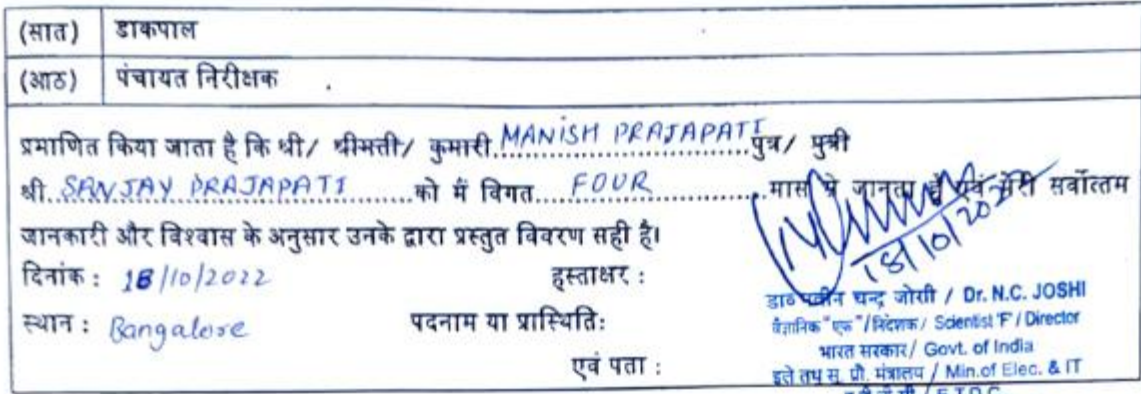 (सात) डाकपाल
(आठ) पंचायत निरीक्षक
प्रमाणित किया जाता है कि श्री/ श्रीमती/ कुमारी MANISH PRAJAPATI पुत्र/ पुत्री
श्री SANJAY PRAJAPATI को मैं विगत FOUR मास से जानता हूँ एवं मेरी सर्वोत्तम
जानकारी और विश्वास के अनुसार उनके द्वारा प्रस्तुत विवरण सही है।
18/10/2022
दिनांक : 18/10/2022 हस्ताक्षर :
स्थान : Bangalore पदनाम या प्रास्थिति:
एवं पता :
चन्द्र जोशी / Dr. N.C. JOSHI
वैज्ञानिक "एफ"/निदेशक/ Scientist 'F'/ Director
भारत सरकार/ Govt. of India
मंत्रालय / Min.of Elec. & IT